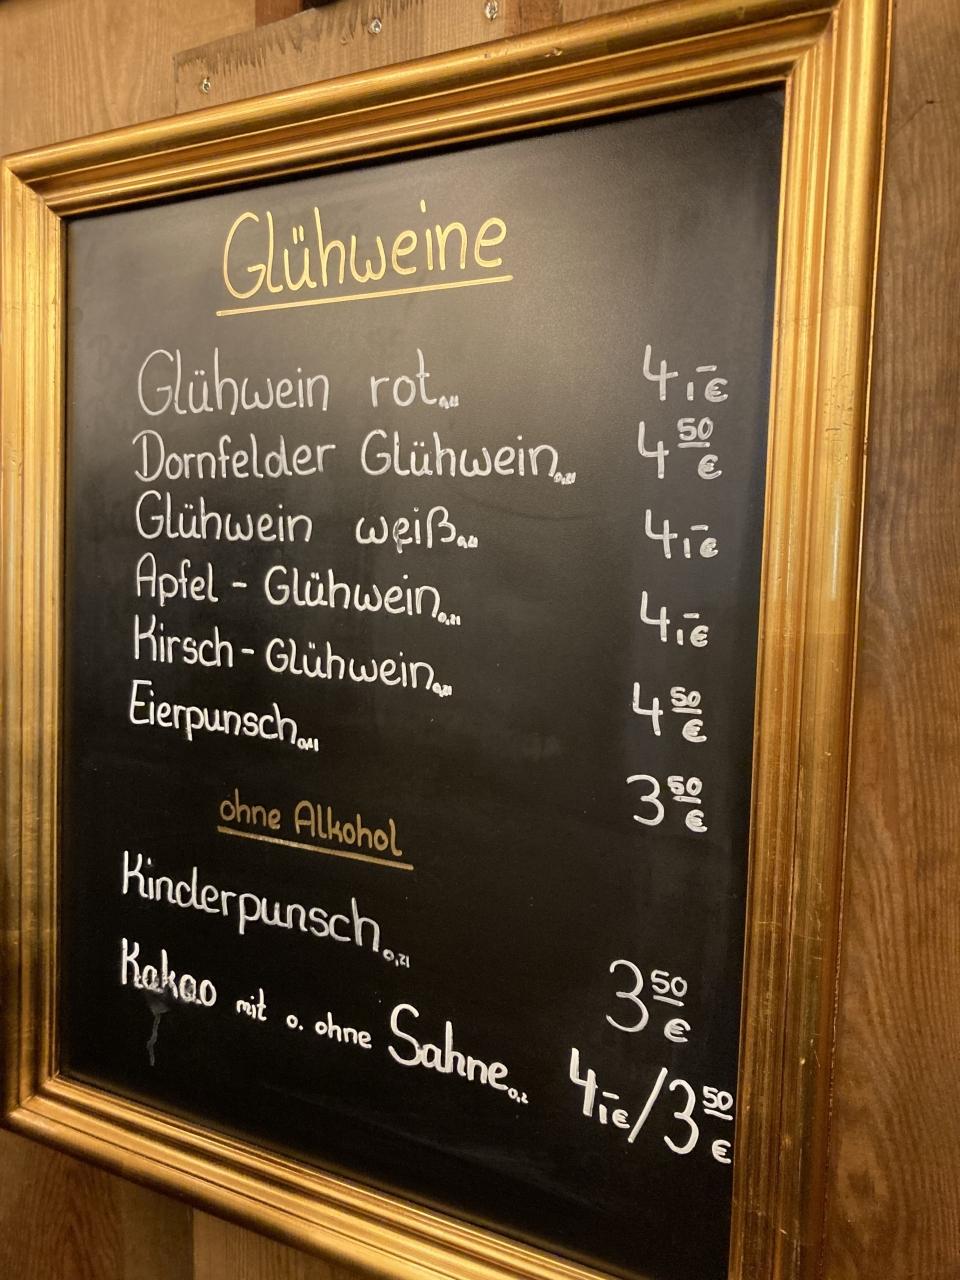 Glühweine
Glühwein rot 4,-€
Dornfelder Glühwein 4 50 €
Glühwein weiß 4,-€
Apfel - Glühwein 0,2l 4,-€
Kirsch - Glühwein 0,2l 4 50 €
Eierpunsch 3 50 €
ohne Alkohol
Kinderpunsch 0,2l 3 50 €
Kakao mit o. ohne Sahne 0,2 4,-€/3 50 €